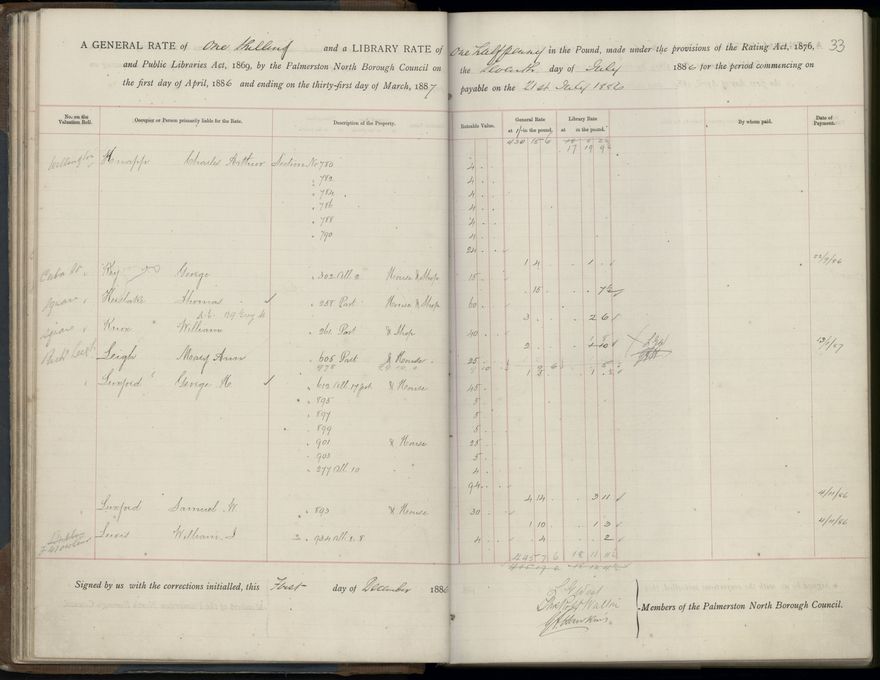 A GENERAL RATE of One Shilling and a LIBRARY RATE of One Halfpenny in the Pound, made under the provisions of the Rating Act, 1876, 33
and Public Libraries Act, 1869, by the Palmerston North Borough Council on the Seventh day of July 1886 for the period commencing on
the first day of April, 1886 and ending on the thirty-first day of March, 1887 payable on the 21st July 1886
No. on the Valuation Roll. Occupier or Person primarily liable for the Rate. Description of the Property. Rateable Value. General Rate at 1/- in the pound. Library Rate at in the pound. By whom paid. Date of Payment.
430 15 6 17 19
Wellington Knapp Charles Arthur Section No 780 4
782 4
784 4
786 4
788 4
790 4
24 1 4 1 22/9/86
Cuba St Key George 302 All 2 House & Shop 15
15 7½
Square Thomas 258 Part House & Shop 60
3 2 6
Square Knox William 261 Part & Shop 40
2 13/1/87
Leigh Mary Ann 605 Part & House 25
978
Luxford George H. 612 All 17 pt & House 45
895 5
897 5
899 5
901 & House 25
903 5
277 All 10 4
94
4 14 3 11 4/11/86
Luxford Samuel W. 893 & House 30
1 10 1 3 4/11/86
Lewis William J 924 All 2.8 4 4 2
445 7 6 18 11
Signed by us with the corrections initialled, this First day of December 1886
Members of the Palmerston North Borough Council.